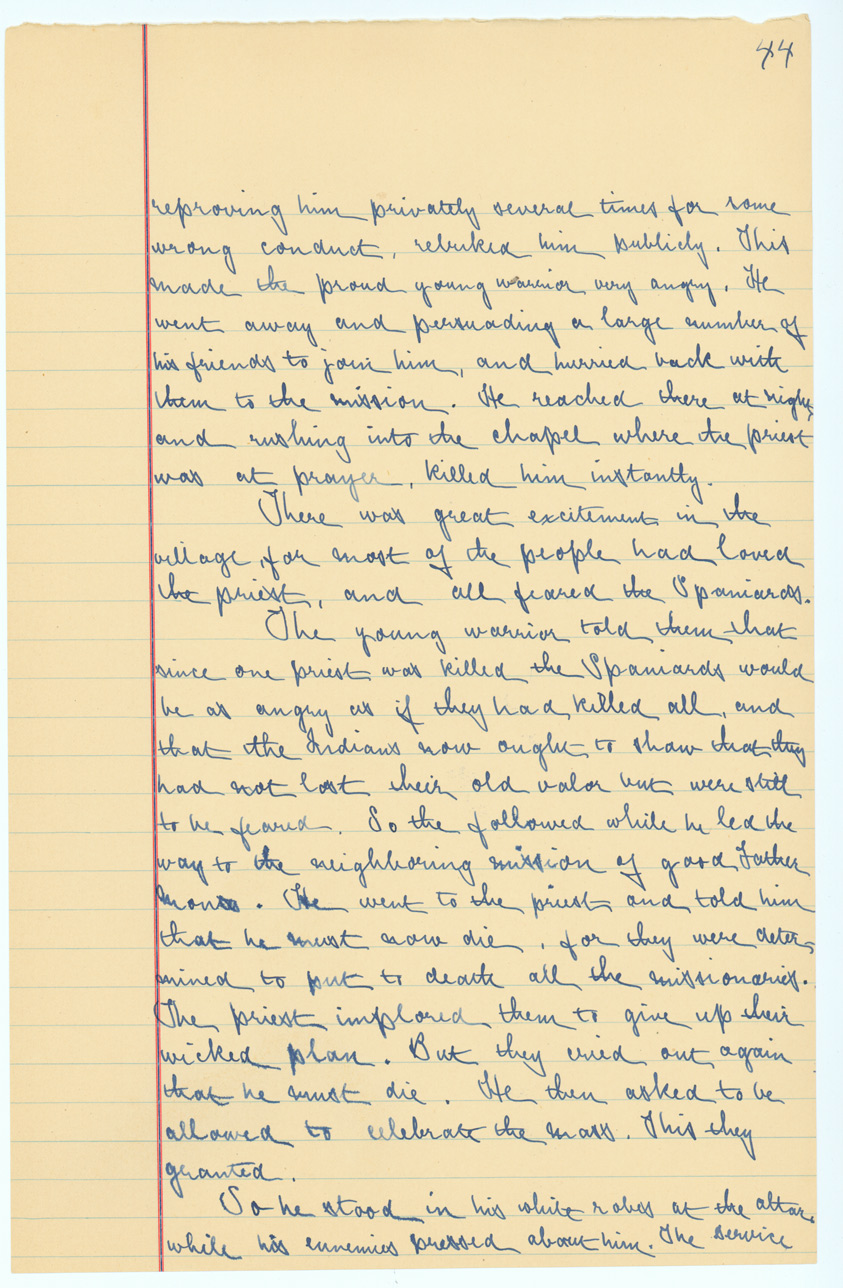 44
reproving him privately several times for some
wrong conduct, rebuked him publicly. This
made the proud young warrior very angry. He
went away and persuading a large number of
his friends to join him, and hurried back with
them to the mission. He reached there at night,
and rushing into the chapel where the priest
was at prayer, killed him instantly.
There was great excitement in the
village, for most of the people had loved
the priest, and all feared the Spaniards.
The young warrior told them that
since one priest was killed the Spaniards would
be as angry as if they had killed all, and
that the Indians now ought to show that they
had not lost their old valor but were still
to be feared. So the followed while he led the
way to the neighboring mission of good Father
. He went to the priest and told him
that he must now die, for they were deter-
mined to put to death all the missionaries.
The priest implored them to give up their
wicked plan. But they cried out again
that he must die. He then asked to be
allowed to celebrate the mass. This they
granted.
So he stood in his white robes at the altar.
while his ennemies pressed about him. The service